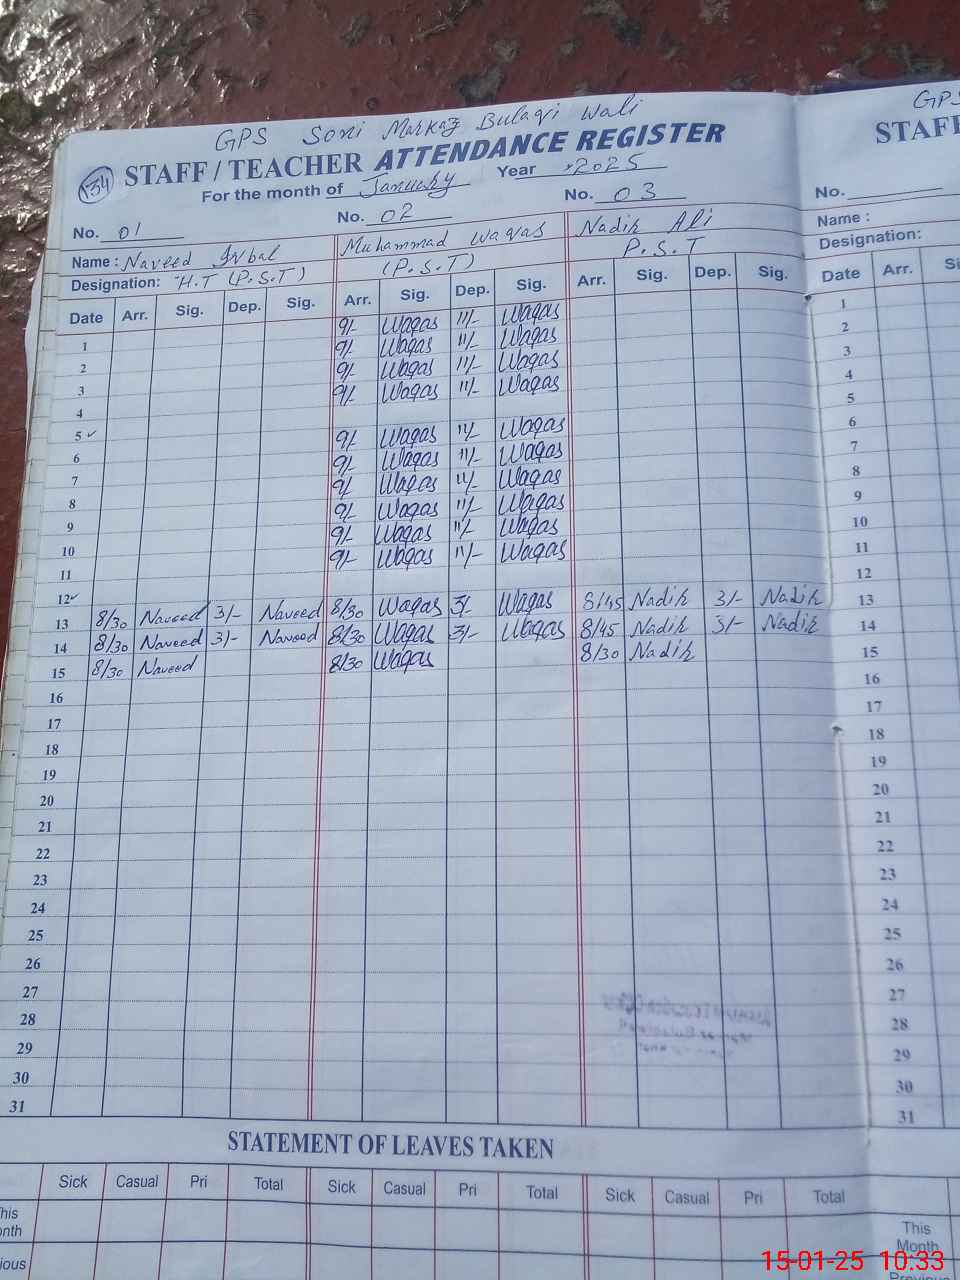 GPS Soni Markaz Bulaqi Wali
GPS
134 STAFF / TEACHER ATTENDANCE REGISTER
STAFF
For the month of January Year 2025
No. 01 No. 02 No. 03 No.
Name : Naveed Iqbal Muhammad Waqas Nadir Ali Name :
Designation: H.T (P.S.T) (P.S.T) P.S.T Designation:
Date Arr. Sig. Dep. Sig. Arr. Sig. Dep. Sig. Arr. Sig. Dep. Sig. Date Arr.
1 9/- Waqas 11/- Waqas 1
2 9/- Waqas 11/- Waqas 2
3 9/- Waqas 11/- Waqas 3
4 9/- Waqas 11/- Waqas 4
5 ✓ 5
6 9/- Waqas 11/- Waqas 6
7 9/- Waqas 11/- Waqas 7
8 9/- Waqas 11/- Waqas 8
9 9/- Waqas 11/- Waqas 9
10 9/- Waqas 11/- Waqas 10
11 9/- Waqas 11/- Waqas 11
12 ✓ 12
13 8/30 Naveed 3/- Naveed 8/30 Waqas 3/- Waqas 8/45 Nadir 3/- Nadir 13
14 8/30 Naveed 3/- Naveed 8/30 Waqas 3/- Waqas 8/45 Nadir 3/- Nadir 14
15 8/30 Naveed 8/30 Waqas 8/30 Nadir 15
16 16
17 17
18 18
19 19
20 20
21 21
22 22
23 23
24 24
25 25
26 26
27 27
28 28
29 29
30 30
31 31
STATEMENT OF LEAVES TAKEN
Sick Casual Pri Total Sick Casual Pri Total Sick Casual Pri Total
This Month
15-01-25 10:33